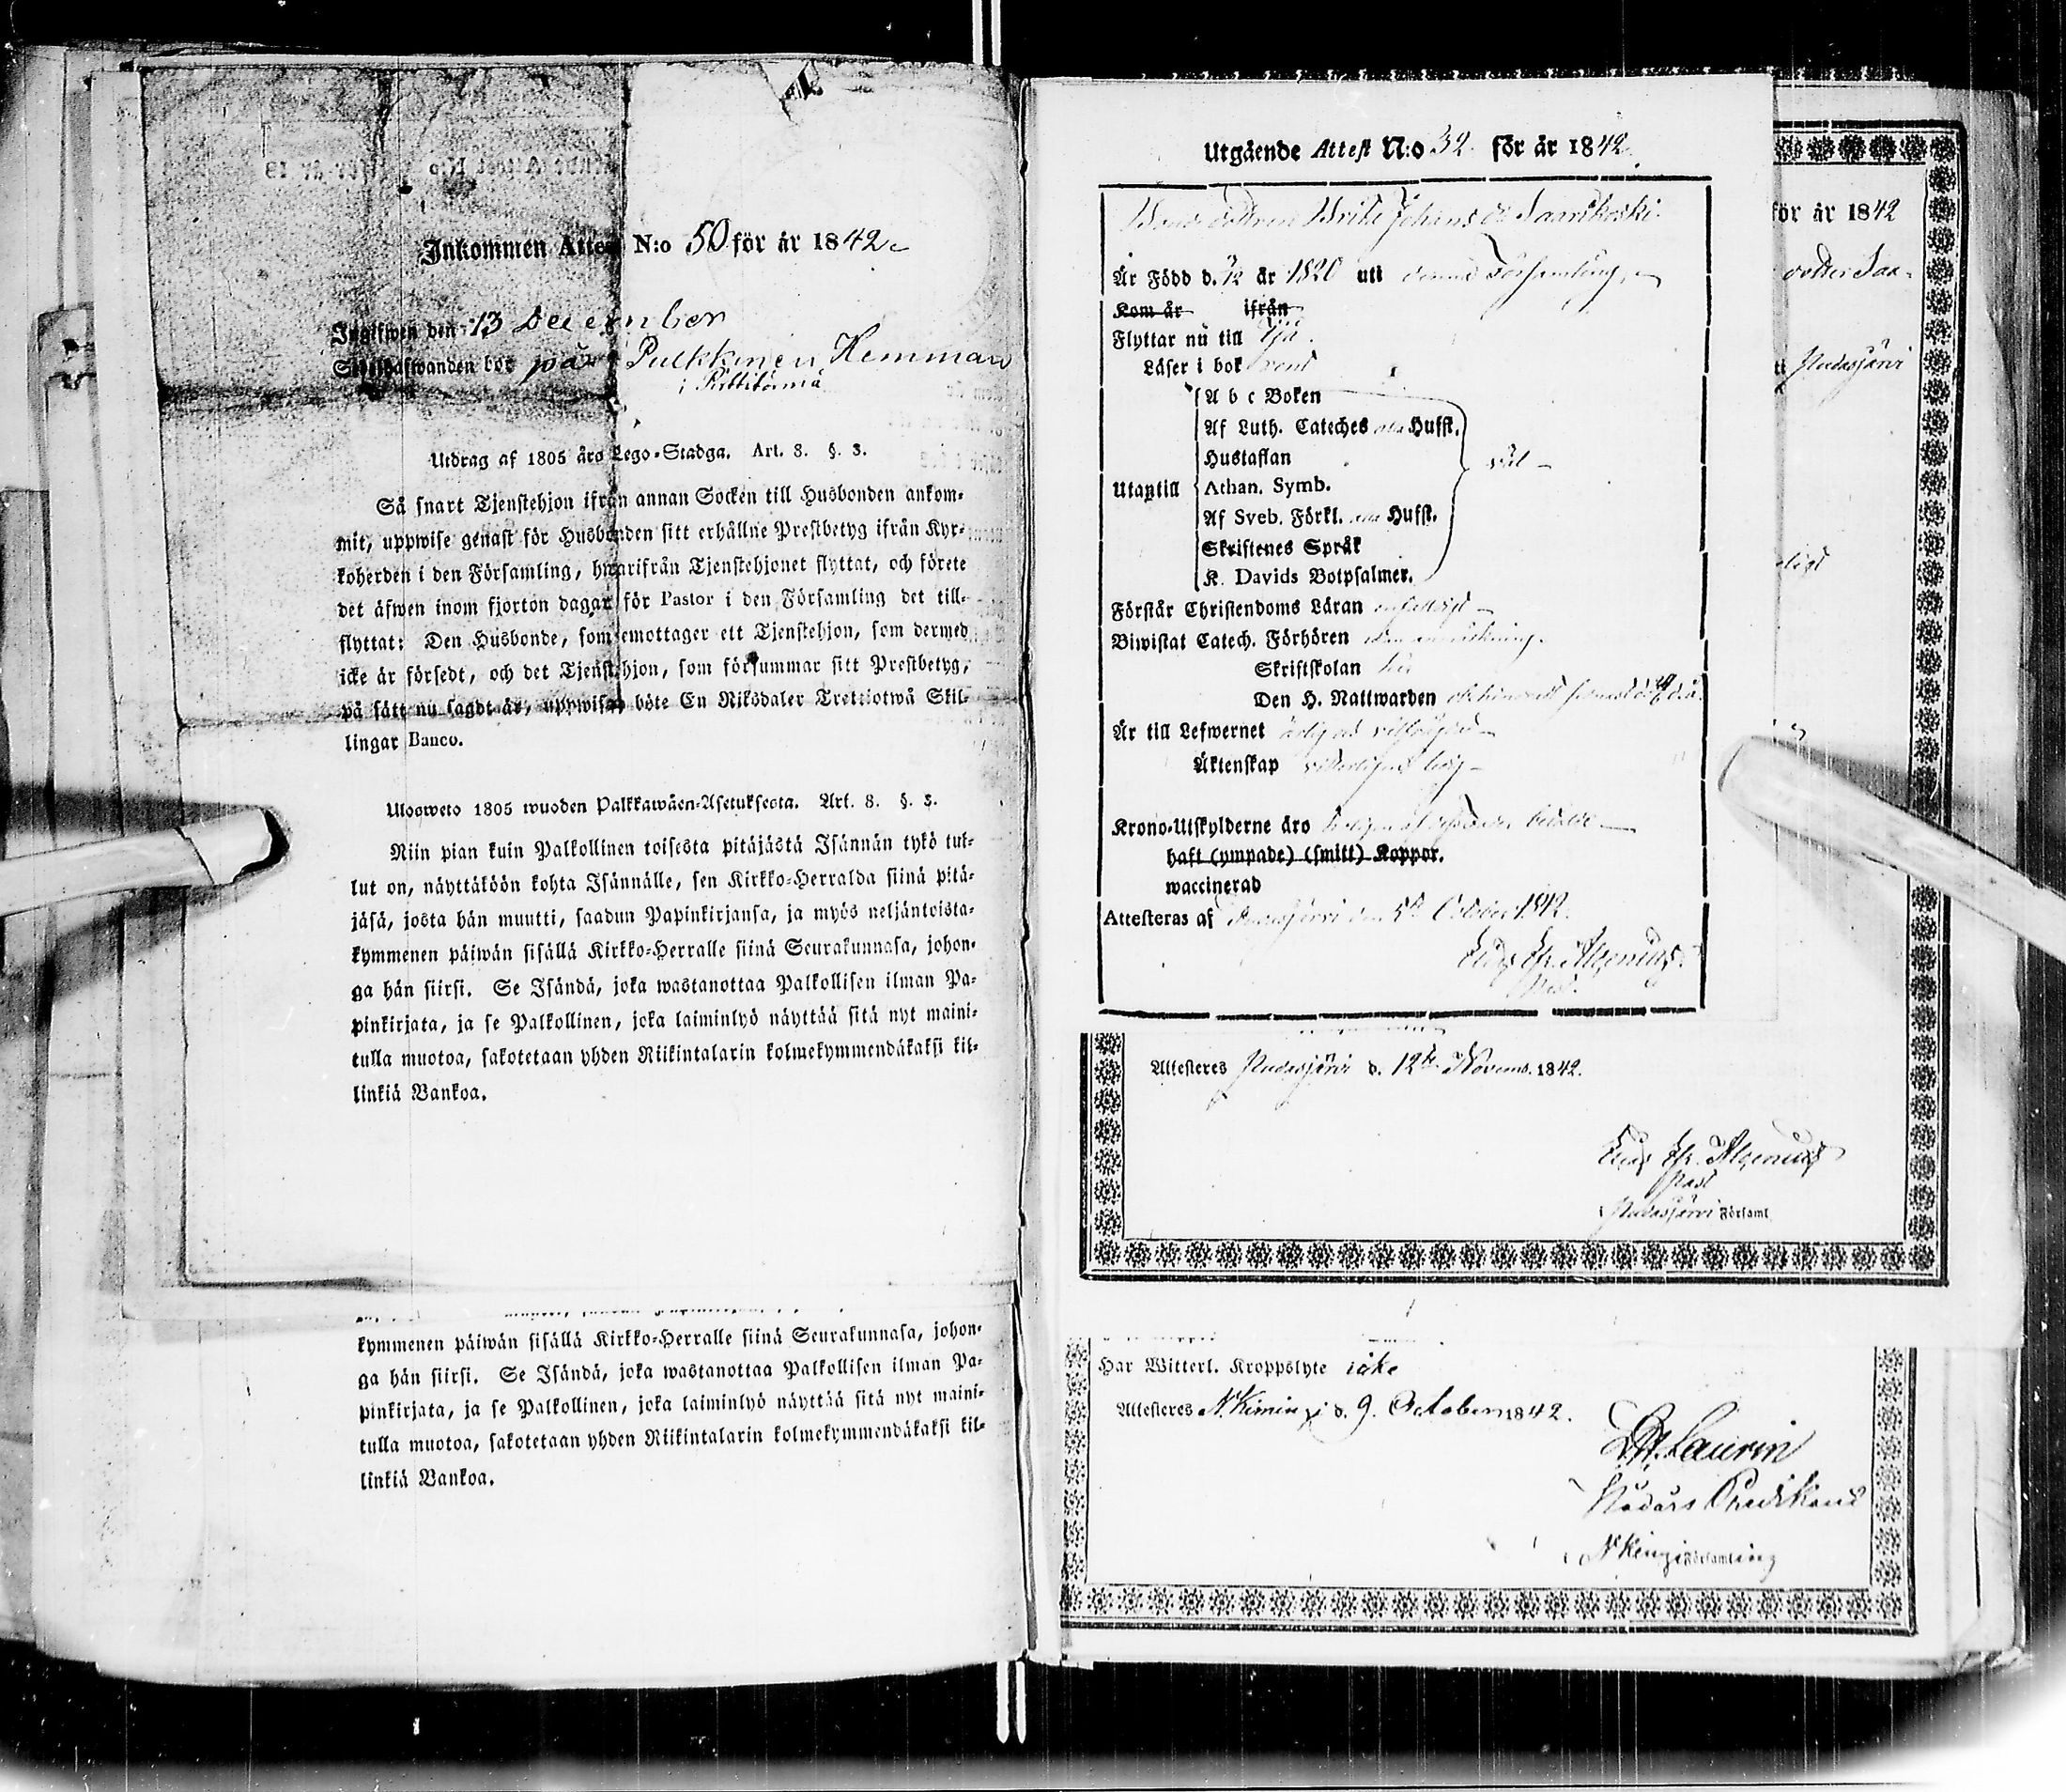 Inkommen Attest N:o 50 för år 1842
Ingifwen den 13 December
bor på Pulkkinen Hemman
i
Utdrag af 1805 års Lego-Stadga. Art. 8. §. 3.
Så snart Tjenstehjon ifrån annan Socken till Husbonden ankom-
mit, uppwise genast för Husbonden sitt erhållne Prestbetyg ifrån Kyr-
koherden i den Församling, hwarifrån Tjenstehjonet flyttat, och förete
det äfwen inom fjorton dagar för Pastor i den Församling det till-
flyttat: Den Husbonde, som emottager ett Tjenstehjon, som dermed
icke är försedt, och det Tjenstehjon, som försummar sitt Prestbetyg,
på sätt nu sagdt är, uppwisa, böte En Riksdaler Trettiotwå Skil-
lingar Banco.
Ulosweto 1805 wuoden Palkkawäen-Asetuksesta. Art. 8. §. 3.
Niin pian kuin Palkollinen toisesta pitäjästä Isännän tykö tul-
lut on, näyttäköön kohta Isännälle, sen Kirkko-Herralda siinä pitä-
jäsä, josta hän muutti, saadun Papinkirjansa, ja myös neljäntoista-
kymmenen päiwän sisällä Kirkko-Herralle siinä Seurakunnasa, johon-
ga hän siirsi. Se Isändä, joka wastanottaa Palkollisen ilman Pa-
pinkirjata, ja se Palkollinen, joka laiminlyö näyttää sitä nyt maini-
tulla muotoa, sakotetaan yhden Riikintalarin kolmekymmendäkaksi kil-
linkiä Bankoa.
kymmenen päiwän sisällä Kirkko-Herralle siinä Seurakunnasa, johon-
ga hän siirsi. Se Isändä, joka wastanottaa Palkollisen ilman Pa-
pinkirjata, ja se Palkollinen, joka laiminlyö näyttää sitä nyt maini-
tulla muotoa, sakotetaan yhden Riikintalarin kolmekymmendäkaksi kil-
linkiä Bankoa.
Utgående Attest N:o 32. för år 1842.
Bonde dottren Brita Johans dr Saarikoski.
Är Född d. år 1820 uti denna Församling,
Kom år ifrån
Flyttar nu till Ijå.
Läser i bok rent
A b c Boken
Af Luth. Cateches Hufst.
Hustaflan
Utantill Athan. Symb. väl
Af Sveb. Förkl. Hufst.
Skriftenes Språk
K. Davids Botpsalmer.
Förstår Christendoms Läran enfaldigt
Biwistat Catech. Förhören
Skriftskolan här
Den H. Nattwarden
Är till Lefwernet ärlig och
Äktenskap ledig
Krono-Utskylderne äro
haft (ympade) (smitt) Koppor.
waccinerad
Attesteras af Pudasjärvi den 5te October 1842.
för år 1842
dotter Saa-
Pudasjärvi
Attesteres Pudasjärvi d. 12te Novemb. 1842.
Past
i Pudasjärvi Församl
Har Witterl. Kroppslyte icke
Attesteres N. Kimingi d. 9. October 1842.
Laurin
Predikant
Församling